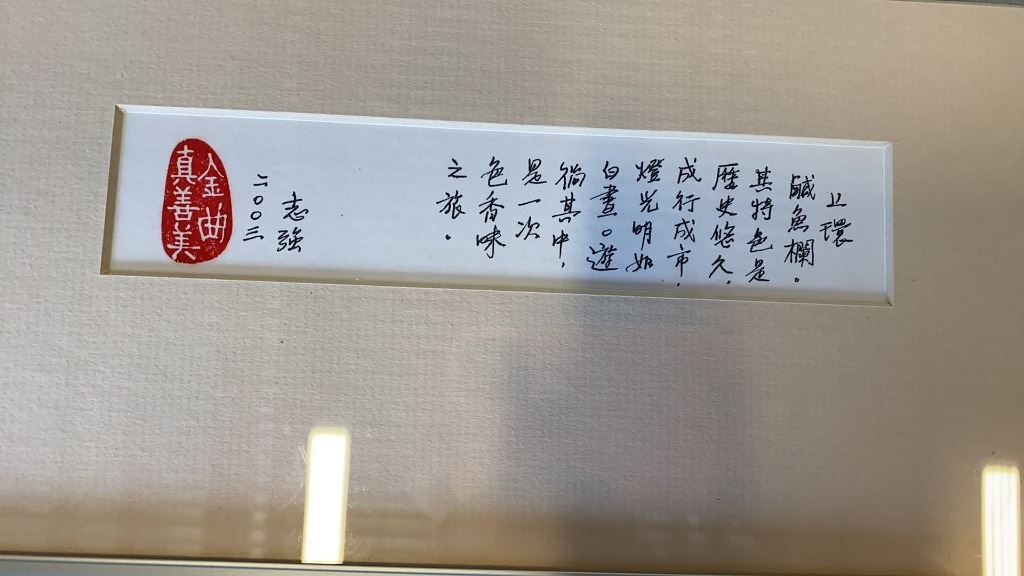 上環
鹹魚欄。
其特色是
歷史悠久，
成行成市，
燈光明如
白晝。遊
徜其中，
是一次
色香味
之旅。
志強
二〇〇三
金曲
真善美